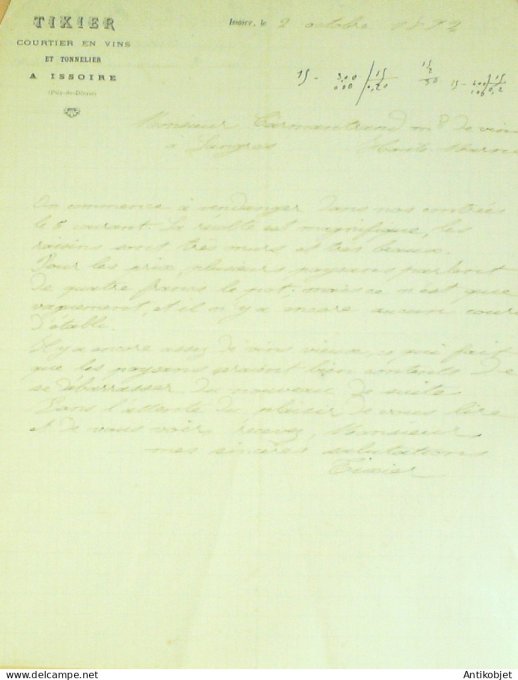 TIXIER
COURTIER EN VINS
ET TONNELIER
A ISSOIRE
(Puy-de-Dôme)
Issoire, le 2 octobre 18
15 -
Monsieur md de vins
à Langres Haute Marne
On commence à vendanger dans nos contrées
le 8 courant. La récolte est magnifique, les
raisins sont très murs et très beaux.
Pour les prix, plusieurs paysans parlent
de quatre francs le pot, mais ce n'est que
vaguement, et il n'y a encore aucun cours
d'établi.
Il y a encore assez de vins vieux, ce qui fait
que les paysans seraient bien contents de
se débarrasser du nouveau de suite.
Dans l'attente du plaisir de vous lire
et de vous voir, recevez, Monsieur,
mes sincères salutations
Tixier
www.antikobjet.com
Antikobjet